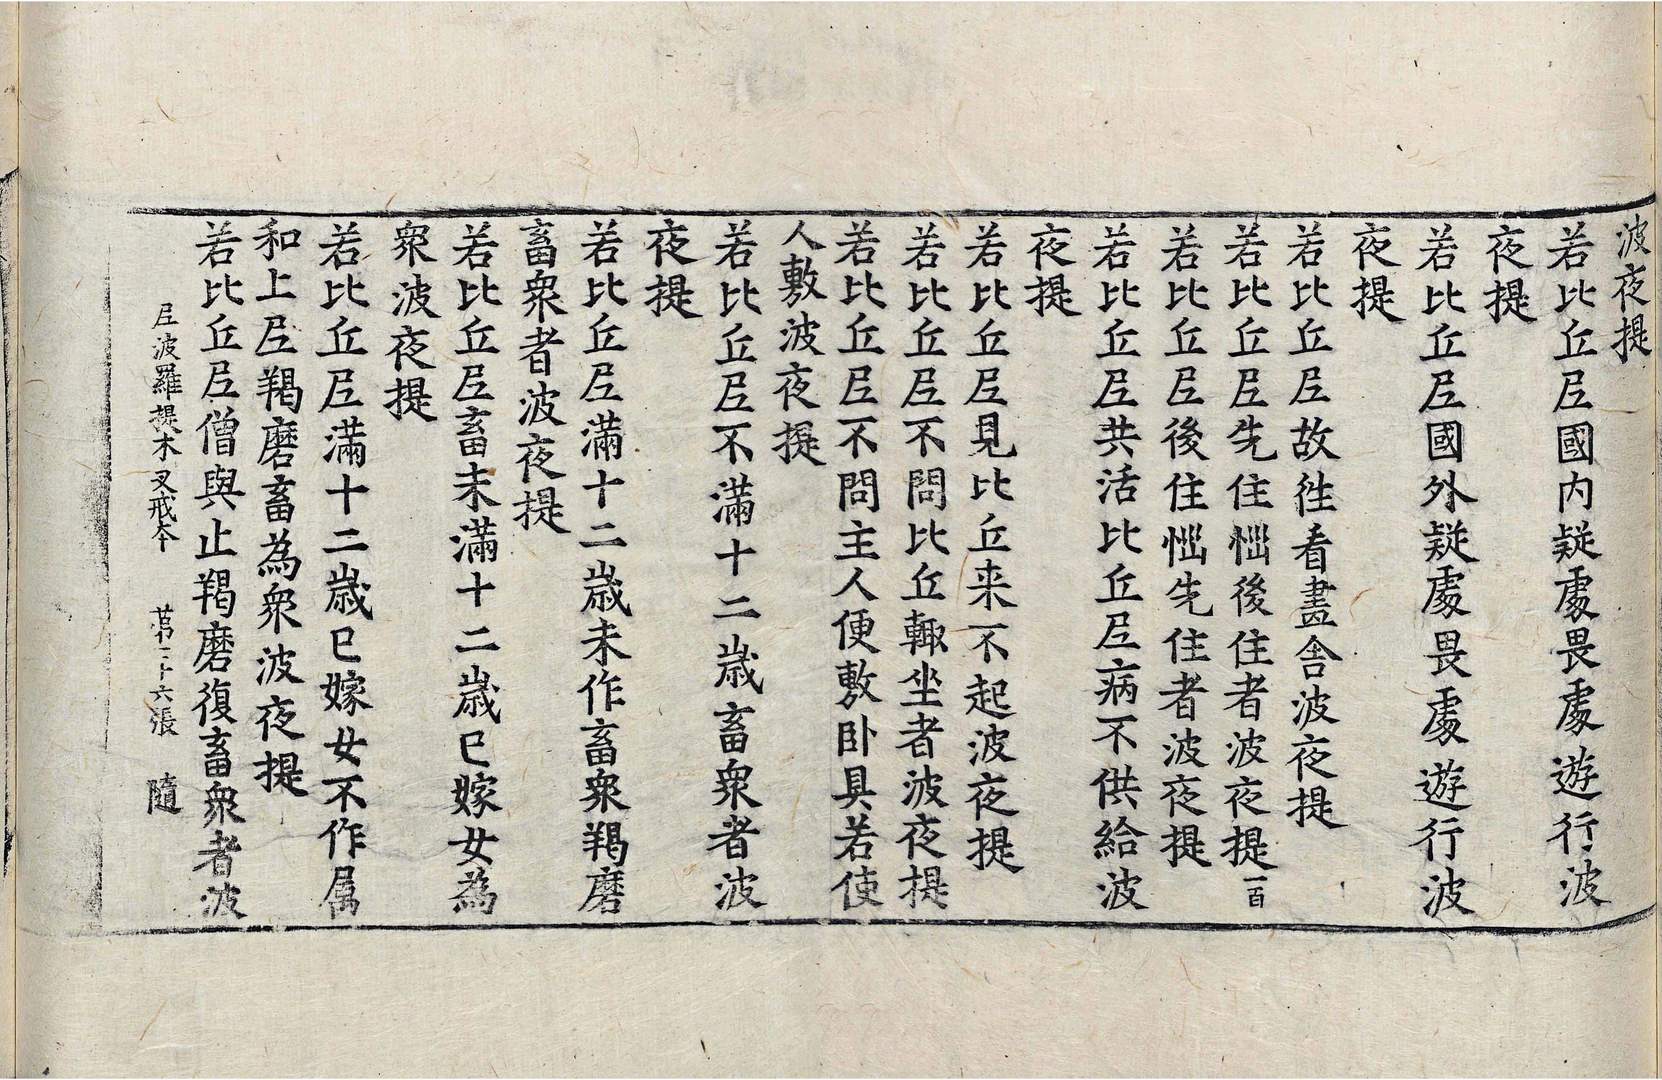 波夜提
若比丘尼國內疑處畏處遊行波
夜提
若比丘尼國外疑處畏處遊行波
夜提
若比丘尼故往看畫舍波夜提
若比丘尼先住惱後住者波夜提一百
若比丘尼後住惱先住者波夜提
若比丘尼共活比丘尼病不供給波
夜提
若比丘尼見比丘来不起波夜提
若比丘尼不問比丘輙坐者波夜提
若比丘尼不問主人便敷卧具若使
人敷波夜提
若比丘尼不滿十二歲畜衆者波
夜提
若比丘尼滿十二歲未作畜衆羯磨
畜衆者波夜提
若比丘尼畜未滿十二歲已嫁女為
衆波夜提
若比丘尼滿十二歲已嫁女不作属
和上尼羯磨畜為衆波夜提
若比丘尼僧與止羯磨復畜衆者波
尼波羅提木叉戒本 第二十六張 隨